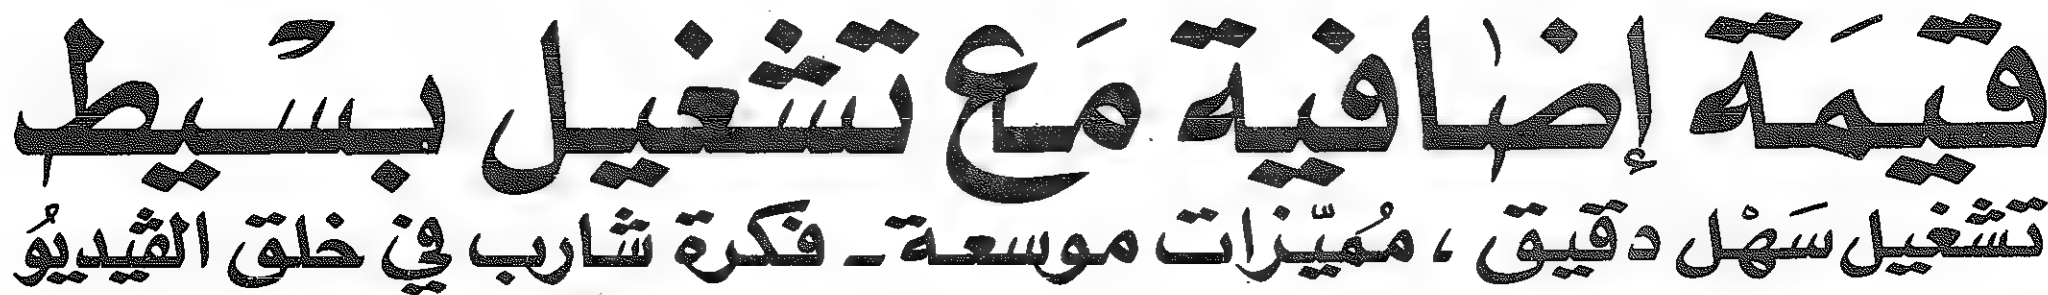 قيمَة إضافية مَع تشغيل بسّيط
تشغيل سَهْل دقيق ، مُميّزات موسعة ـ فكرة شارب في خلق الڤيديوُ